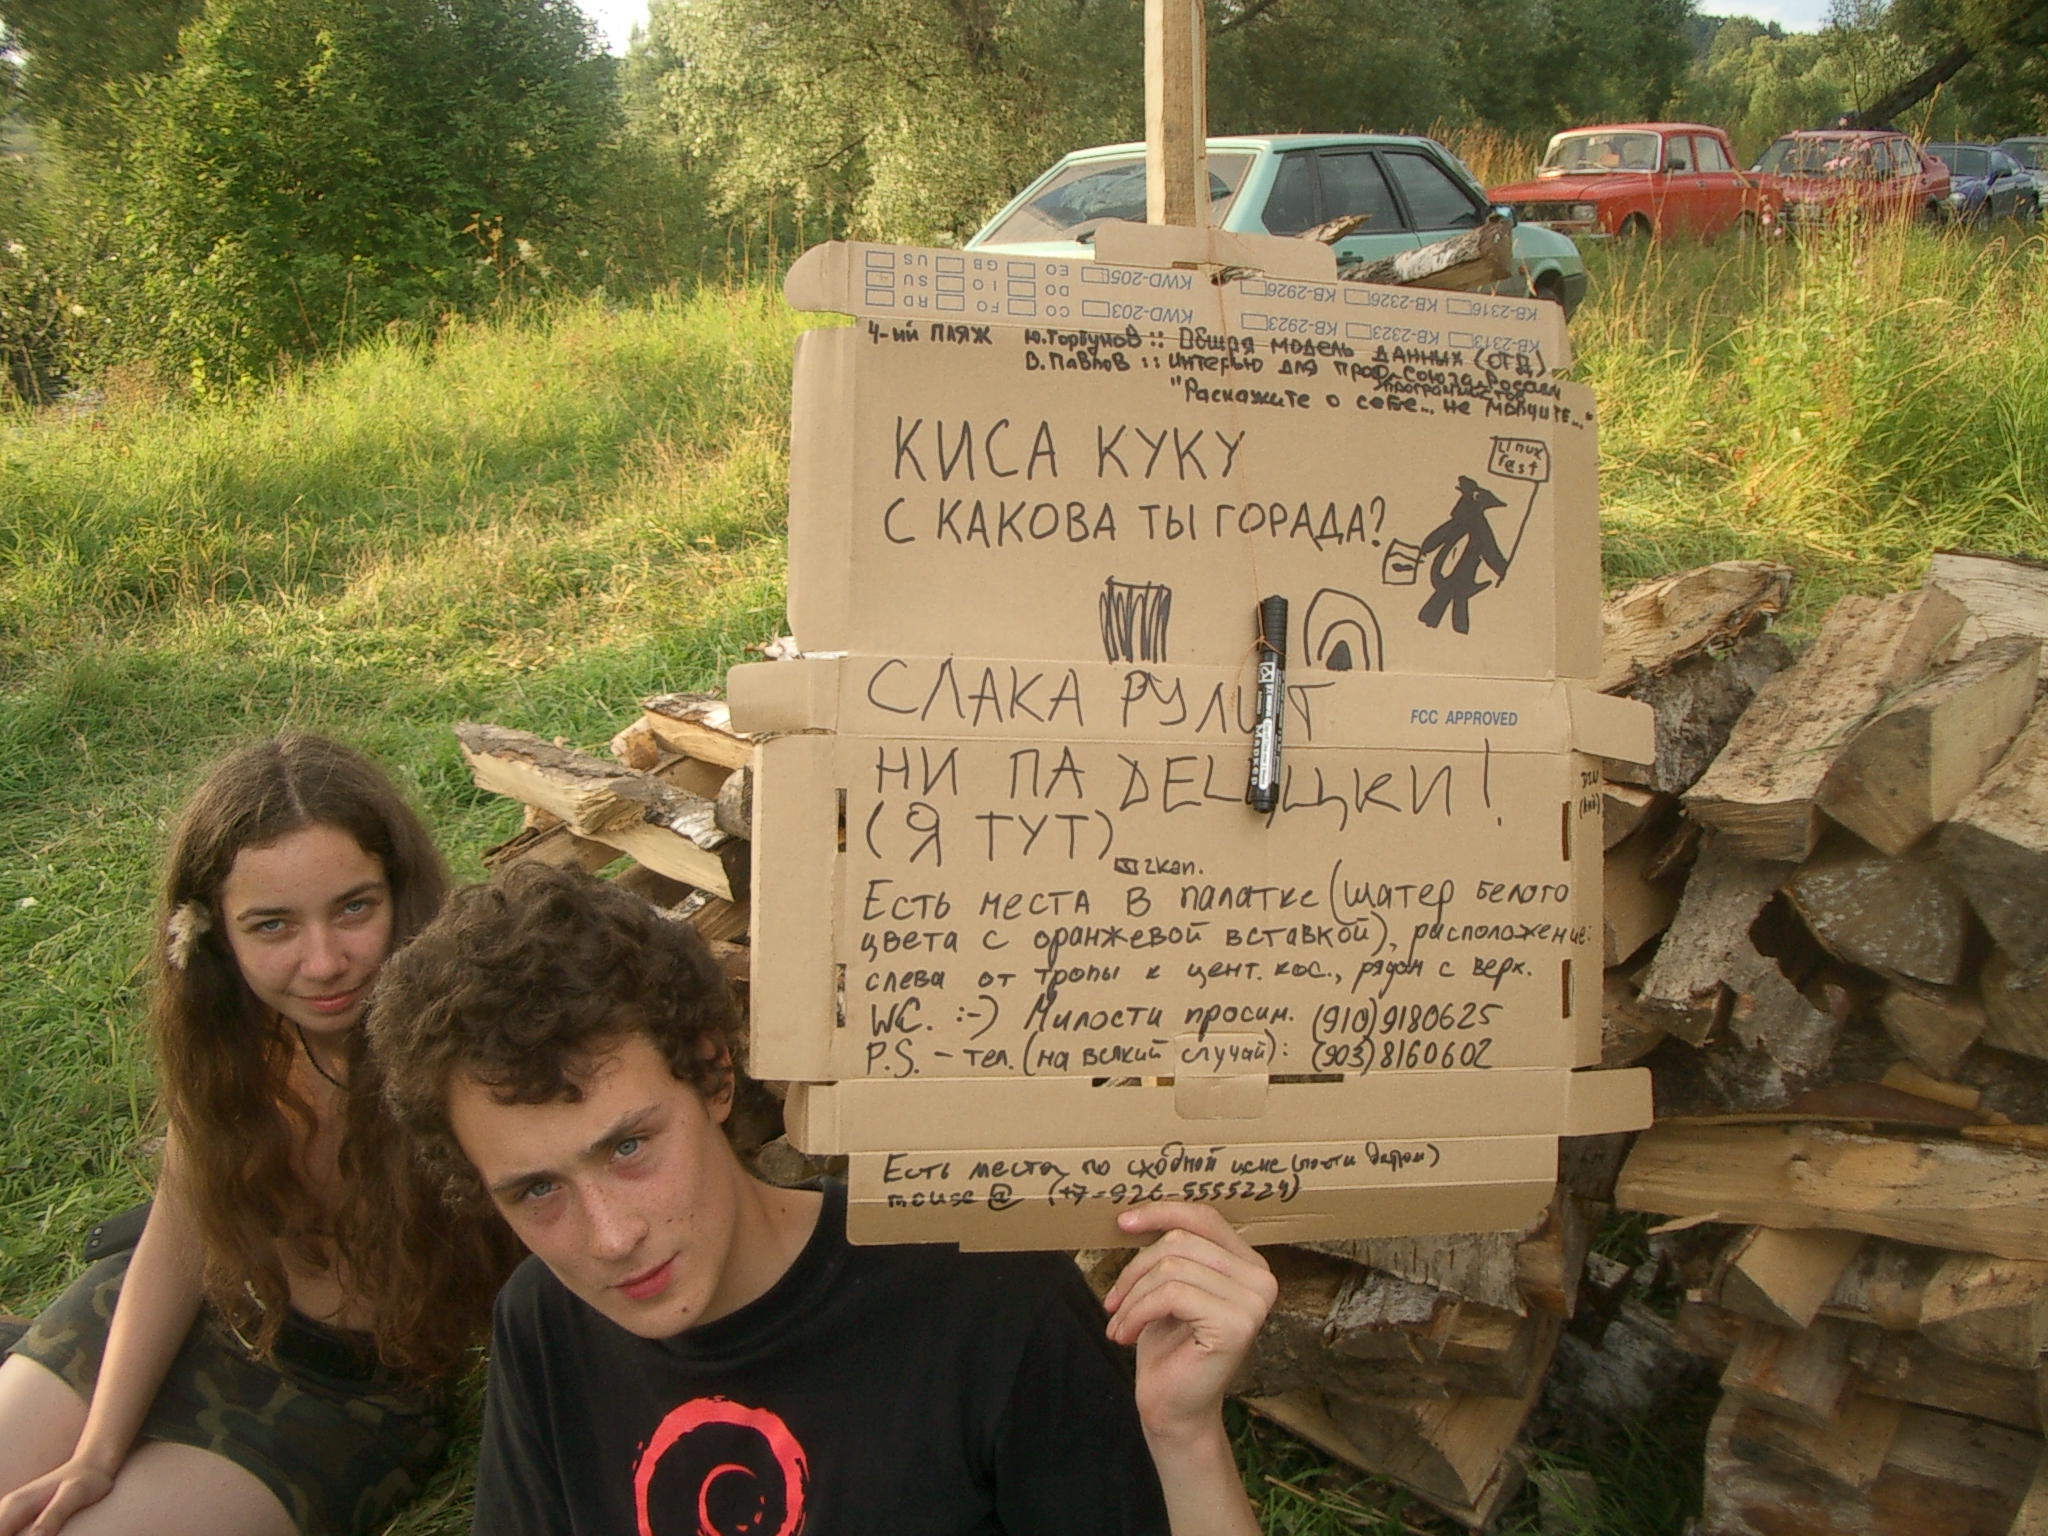 KB-2316 KB-2326 KB-2926 KWD-205 EO GB US
DO IO SU
KB-2313 KB-2323 KB-2923 KWD-203 CO FO RD
4-ый ПЛЯЖ Ю.Горбунов :: Общая модель данных (ОГД)
В.Павлов :: интервью для проф-союза России
программистов
"Раскажите о себе... не молчите..."
КИСА КУКУ
С КАКОВА ТЫ ГОРАДА?
Linux
fest
СЛАКА РУЛИТ
FCC APPROVED
НИ ПА DELЦКИ!
(Я ТУТ)
2кап.
Есть места в палатке (шатер белого
цвета с оранжевой вставкой), расположение:
слева от тропы к цент. кос., рядом с верх.
WC. :-) Милости просим. (910)9180625
P.S. - тел. (на всякий случай): (903)8160602
Есть места по сходной цене (почти даром)
mouse @ (+7-926-5555224)
Маркер